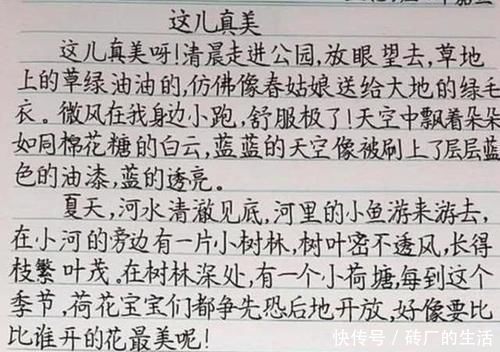 这儿真美
这儿真美呀!清晨走进公园,放眼望去,草地
上的草绿油油的,仿佛像春姑娘送给大地的绿毛
衣。微风在我身边小跑,舒服极了!天空中飘着朵朵
如同棉花糖的白云,蓝蓝的天空像被刷上了层层蓝
色的油漆,蓝的透亮。
夏天,河水清澈见底,河里的小鱼游来游去,
在小河的旁边有一片小树林,树叶密不透风,长得
枝繁叶茂。在树林深处,有一个小荷塘,每到这个
季节,荷花宝宝们都争先恐后地开放,好像要比
比谁开的花最美呢!
快传号/砖厂的生活